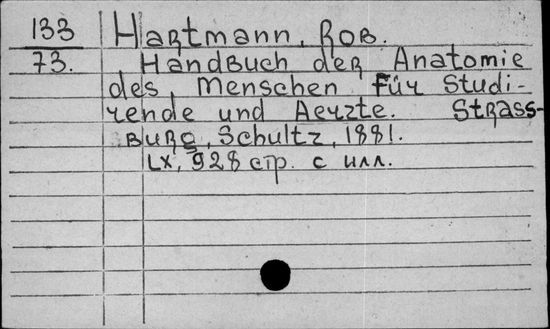 133
73.
Hartmann, Rob.
Handbuch der Anatomie
des Menschen für Studi-
rende und Aerzte. Strass-
burg, Schultz, 1881.
LX, 928 стр. с илл.